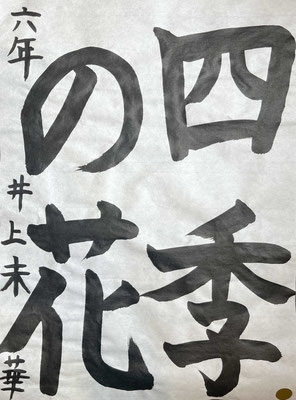 四季
の花
六年 井上未華